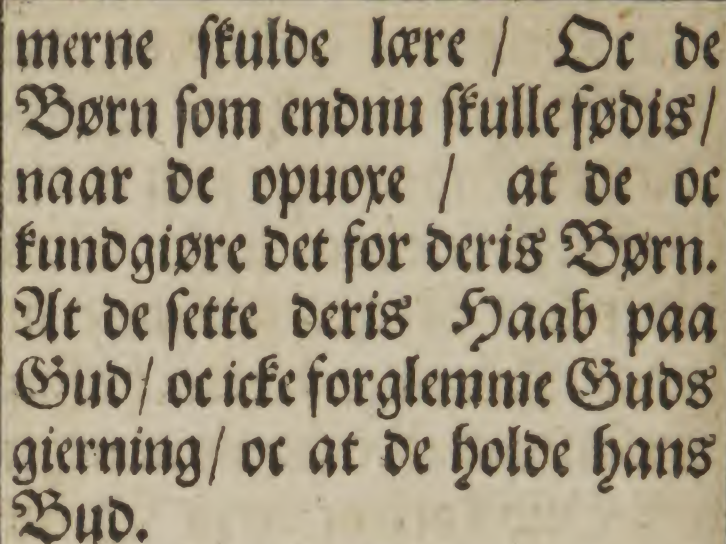 merne skulde lære / Oc de
Børn som endnu skulle fødis/
naar de opuoxe / at de oc
kundgiøre det for deris Børn.
At de sette deris Haab paa
Gud/ oc icke forglemme Guds
gierning/ oc at de holde hans
Bud.